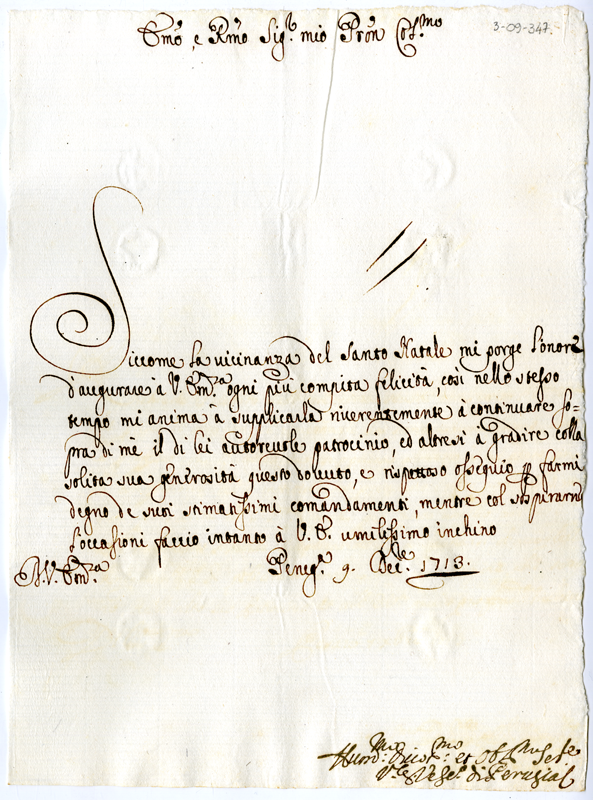 Emo, e Rmo Sig.r mio Pron Col.mo
3-09-347.
Siccome la vicinanza del Santo Natale mi porge l'onore
d'augurare à V. Em.za ogni più compita felicità, così nello stesso
tempo mi anima à supplicarla riverentemente à continuare so-
pra di mè il di lei autorevole patrocinio, ed altresi à gradire colla
solita sua generosità questo dovuto, e rispettoso ossequio p farmi
degno de suoi stimatissimi comandamenti, mentre col sospirarne
l'occasioni faccio intanto à V. E. umilissimo inchino
Em.za Perug.a 9. Dec.e 1713.
Hum.mo et Obl.mo Se.re
di Perugia